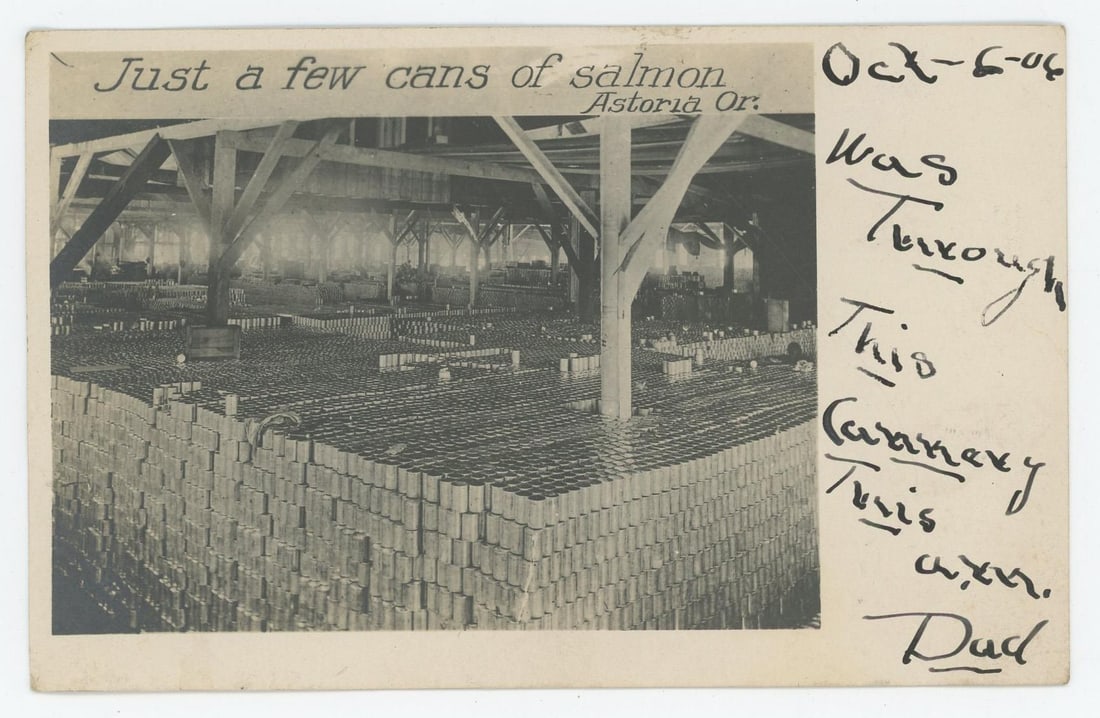 Just a few cans of salmon
Astoria Or.
Oct-6-06
Was
Through
This
Cannery
This
a,m.
Dad